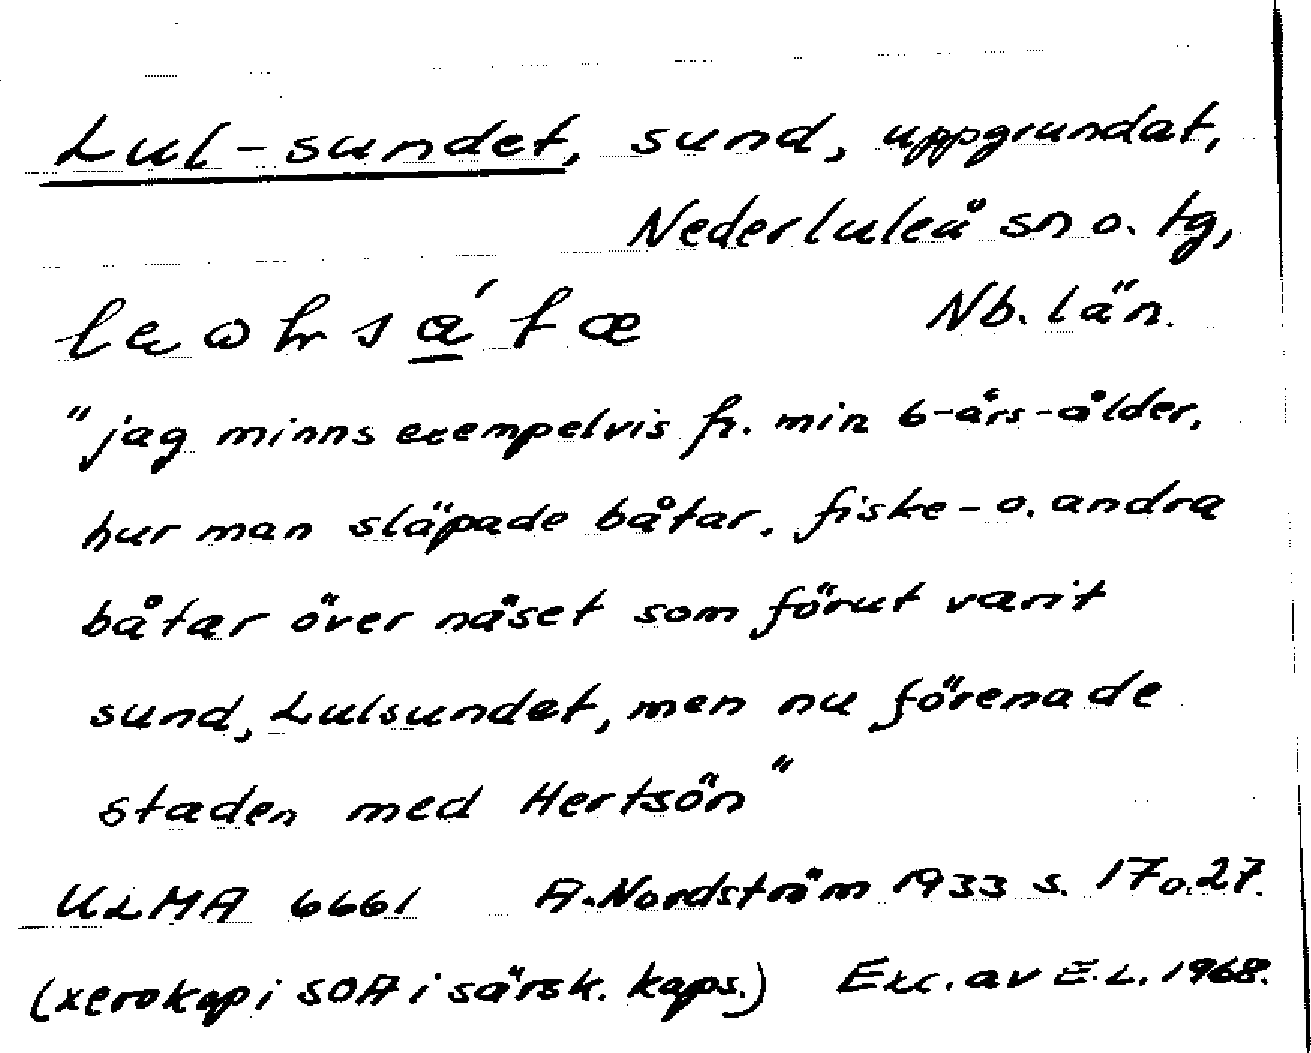 Lul-sundet, sund, uppgrundat,
Nederluleå sn o. tg,
Nb. län.
"jag minns exempelvis fr. min 6-års-ålder,
hur man släpade båtar, fiske- o. andra
båtar över näset som förut varit
sund, Lulsundet, men nu förenade
staden med Hertsön"
ULMA 6661 A. Nordström 1933 s. 17 o. 27.
(xerokop i SOA i särsk. kaps.) Exc. av E.L. 1968.